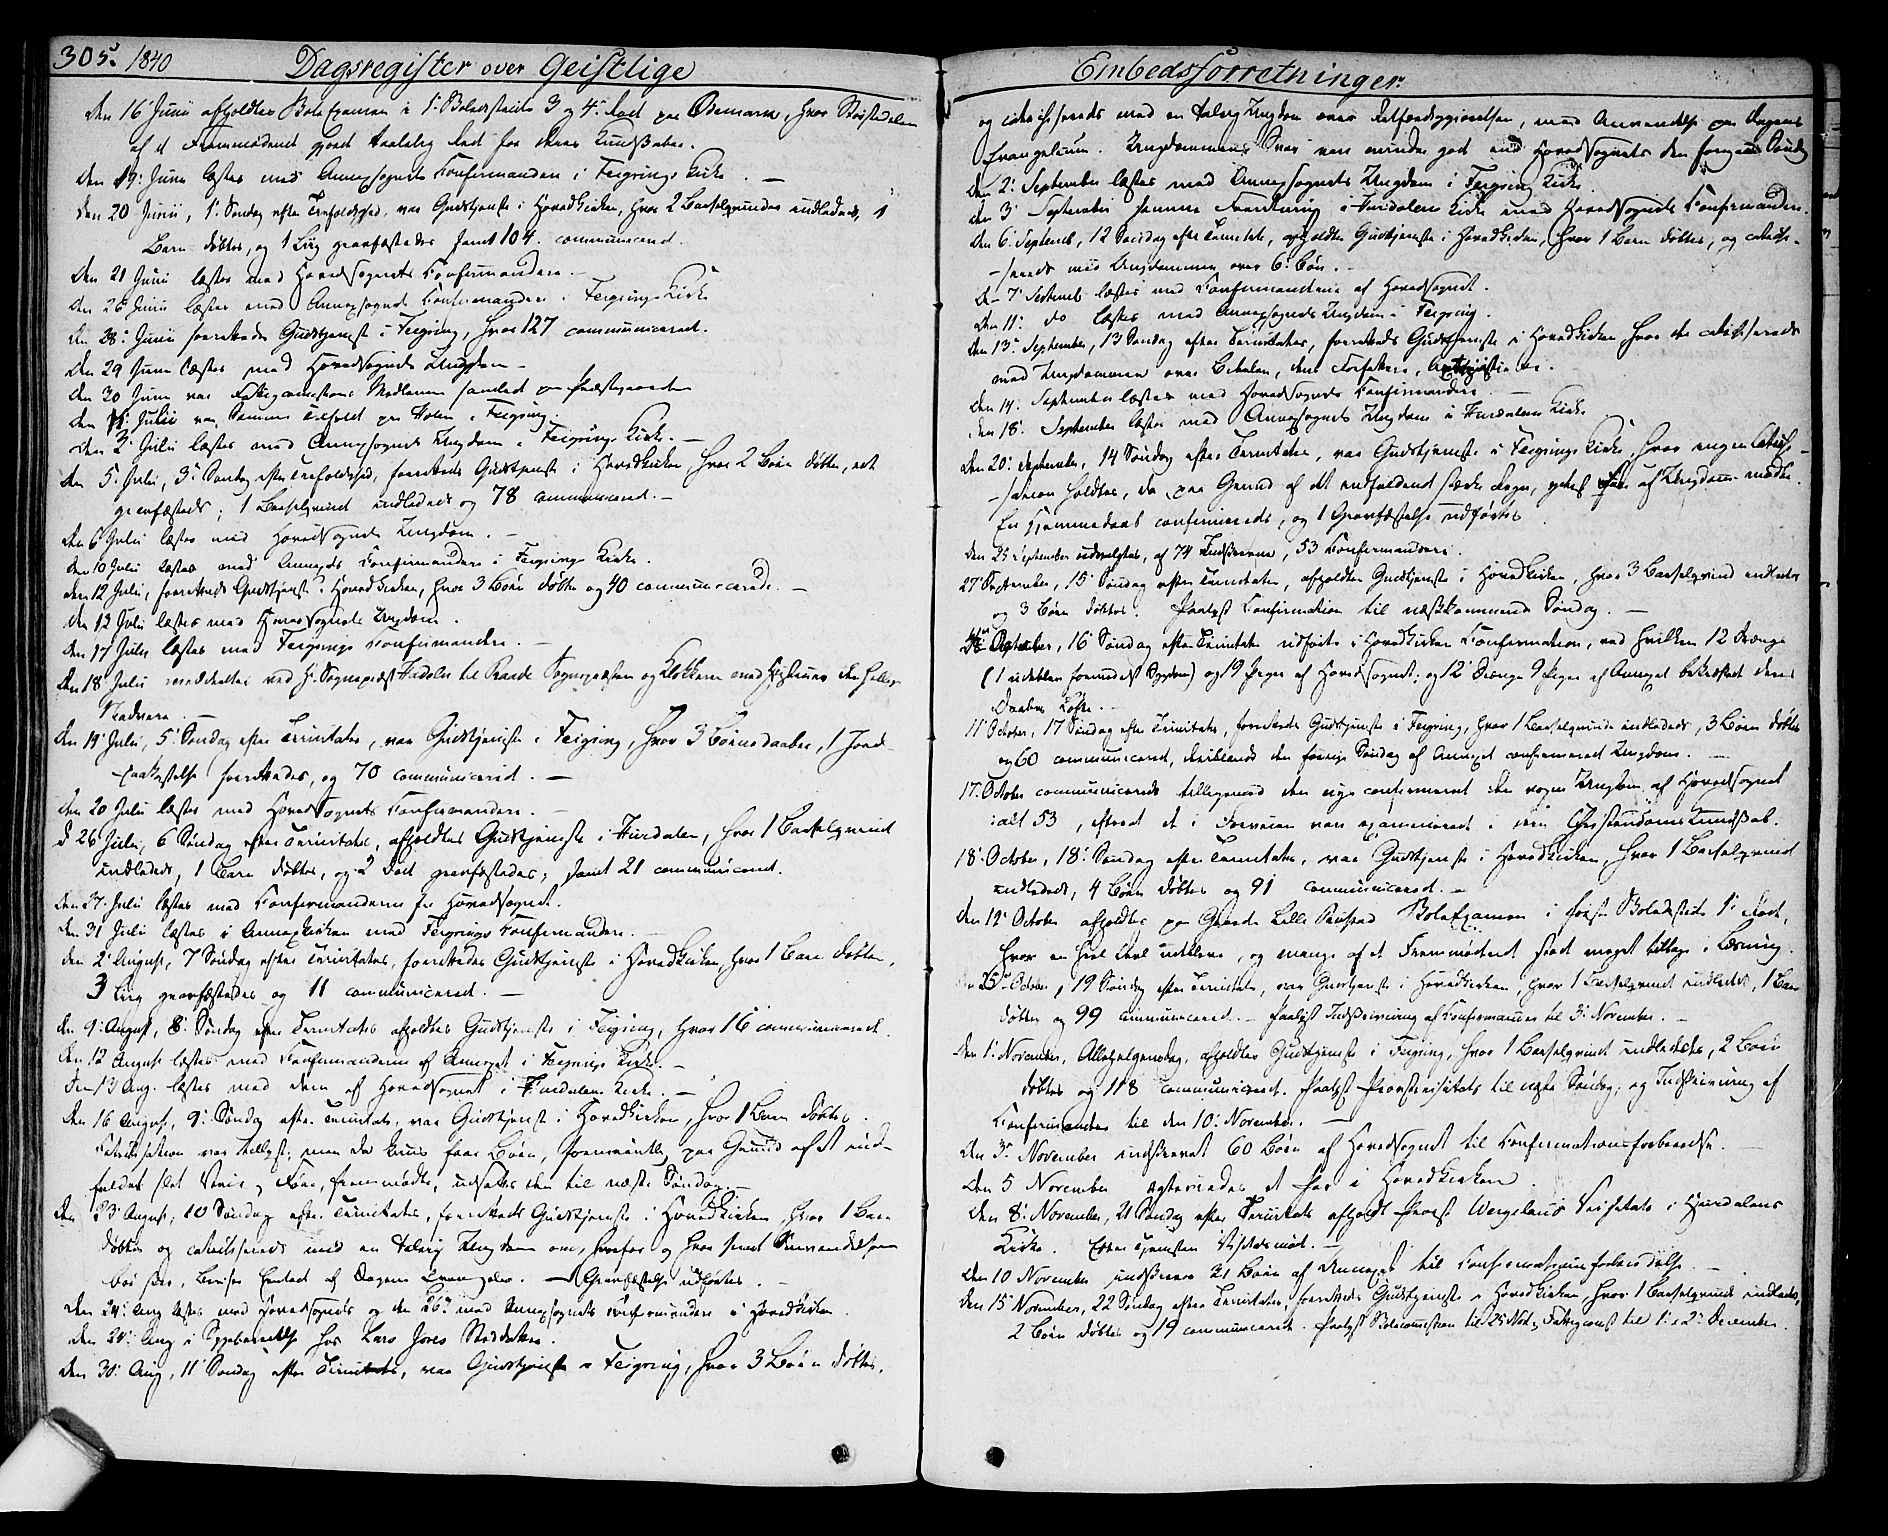 305. 1840 Dagsregister over Geistlige
Den 16 Junii afholdtes i 3 og 4 Rod paa Ødemark, hvor
af et
Den 19: Junii læstes med Annexsognets Confirmander i Feigrings Kirke. —
Den 20 Junii, 1: Søndag efter Trefoldighed, var Gudstjeneste i Hovedkirken, hvor 2 Barselqvinder indledede, 1
Barn døbtes, og 1 Liig gravfæstedes samt 104 communicered.
Den 21 Junii læstes med Hovedsognets Confirmandere. —
Den 26 Junii læstes med Annexsognets Confirmandere i Feigrings Kirke
Den 28: Junii forrettedes Gudstjeneste i Feigring, hvor 127 communicered.
Den 29 Junii læstes med Hovedsognets Ungdom —
Den 30 Junii var Fattigcommissions Medlemmer samled paa Præstegaarden
Den 1: Julii var Samme Tilfæld paa Holm i Feigring.
Den 3: Julii læstes med Annexsognets Ungdom i Feigrings Kirke. —
Den 5. Julii, 3: Søndag efter Trefoldighed, forrettedes Gudstjeneste i Hovedkirken hvor 2 Børn døbtes, eet
gravfæstedes; 1 Barselqvind indledede og 78 communicered. —
Den 6 Julii læstes med Hovedsognets Ungdom. —
Den 10 Julii læstes med Annexets Confirmandere i Feigrings Kirke.
Den 12 Julii, forrettedes Gudstjenest i Hovedkirken, hvor 3 Børn døbtes og 40 communicerede. —
Den 13 Julii læstes med Hovedsognets Ungdom.
Den 17 Julii læstes med Feigrings Confirmandere. —
Den 18 Julii meddeeltes ved Hr Sognepræst til Sognepræsten og Klokkeren med den hellige
Nadvere. —
Den 19 Julii, 5: Søndag efter Trinitatis, var Gudstjeneste i Feigring, hvor 3 Børnedaaber, 1 Jord-
paakastelse forrettedes, og 70 communicered. —
Den 20 Julii læstes med Hovedsognets Confirmandere. —
D 26 Julii, 6 Søndag efter Trinitatis, afholdtes Gudstjeneste i Hurdalen, hvor 1 Barselqvind
indledede, 1 Barn døbtes, og 2 Død gravfæstedes; samt 21 communicered.
Den 27. Julii læstes med Confirmanderne fra Hovedsognet.
Den 31 Julii læstes i Annexkirken med Feigrings Confirmandere. —
Den 2: August, 7 Søndag efter Trinitatis, forrettedes Gudstjeneste i Hovedkirken, hvor 1 Barn døbtes,
3 Liig gravfæstedes og 11 communicered. —
Den 9: August, 8: Søndag efter Trinitatis afholdtes Gudstjeneste i Feigring, hvor 16 communicered.
Den 12 August læstes med Confirmanderne af Annexet i Feigrings Kirke. —
Den 13 Aug. læstes med dem af Hovedsognet i Hurdalens Kirke. —
Den 16 August, 9: Søndag efter Trinitatis, var Gudstjeneste i Hovedkirken, hvor 1 Barn døbtes.
Catechisation var tillyst; men da kun faae Børn, formeentlig paa Grund af et ind-
faldet slet Veir og Føre, fremmødte, udsattes den til næste Søndag. —
Den 23 August, 10 Søndag efter Trinitatis, forrettedes Gudstjeneste i Hovedkirken, hvor 1 Barn
døbtes og catechiseredes med en talrig Ungdom om, hvorfor og hvor
af Dagens Evangelier. — 1 Gravfæstelse udførtes. —
Den 24: Aug læstes med Hovedsognets og den 26: med Annexsognets Confirmandere i Hovedkirken
Den 28: Aug i Sygeberettelse hos Lars Jores
Den 30: Aug, 11 Søndag efter Trinitatis, var Gudstjenest i Feigring, hvor 3 Børn døbtes,
Embedsforretninger.
og catechiseredes med en talrig Ungdom over Retfærdiggjørelsen, med Anvendelse paa Dagens
Evangelium. Ungdommens Svar var mindre god end Hovedsognets den Søndag
Den 2: September læstes med Annexsognets Ungdom i Feigring Kirke.
Den 3: September samme Forretning i Hurdalens Kirke med Hovedsognets Confirmandere.
Den 6: Septemb, 12 Søndag efter Trinitatis, afholdtes Gudstjeneste i Hovedkirken, hvor 1 Barn døbtes, og catechi-
seredes med Ungdommen over 6: Bøn. —
D- 7: Septemb læstes med Confirmanderne af Hovedsognet.
Den 11: do læstes med Annexsognets Ungdom i Feigring.
Den 13: September, 13 Søndag efter Trinitatis, forrettedes Gudstjeneste i Hovedkirken hvor der catechiseredes
med Ungdommen over Bibelen, dens Forfattere,
Den 14: September læstes med Hovedsognets Confirmandere. —
Den 18: September læstes med Annexsognets Ungdom i Hurdalens Kirke
Den 20: September, 14 Søndag efter Trinitatis, var Gudstjeneste i Feigrings Kirke, hvor ingen Catechi-
sation holdtes, da paa Grund af det indfaldende stærke Regn, af Ungdommen mødte.
En Hjemmedaab confirmeredes, og 1 Gravfæstelse udførtes
Den 25 September udvalgtes, af 74 Indskrevne, 53 Confirmandere.
27 September, 15 Søndag efter Trinitatis, afholdtes Gudstjeneste i Hovedkirken, hvor 3 Barselqvind indledes
og 3 Børn døbtes. Paalyst Confirmation til næstkommende Søndag. —
4de October, 16 Søndag efter Trinitatis udførtes i Hovedkirken Confirmation, ved hvilken 12 Drenge
(1 udeblev formedelst Sygdom) og 19 Piger af Hovedsognet; og 12 Drenge 9 Piger af Annexet bekræftet deres
Daabes Løfte. —
11 October, 17 Søndag efter Trinitatis, forrettedes Gudstjeneste i Feigring, hvor 1 Barselqvinde indledede, 3 Børn døbtes
og 60 communicered, iblandt den forrige Søndag af Annexet confirmered Ungdom. —
17. October communicerede tilligemed den nye confirmered den voxne Ungdom af Hovedsognet
ialt 53, efterat de i Forveien vare examinered i sin Christendoms Kundskab.
18: October, 18: Søndag efter Trinitatis, var Gudstjeneste i Hovedkirken, hvor 1 Barselqvind
indledede, 4 Børn døbtes og 91 communicered. —
Den 19: October afholdtes paa Gaarden Lille i første 1: Rod,
hvor en heel Deel udeblev, og mange af de Fremmødte stod meget tilbage i Læsning.
Den 25: October, 19 Søndag efter Trinitatis, var Gudstjeneste i Hovedkirken, hvor 1 Barselqvind indledet, 1 Barn
døbtes og 99 communicered. — Paalyst Indskrivning af Confirmander til 3: November. —
Den 1: November, Allehelgensdag, afholdtes Gudstjeneste i Feigring, hvor 1 Barselqvind indledede, 2 Børn
døbtes og 118 communicered. Paalyst Provstevisitats til næste Søndag; og Indskrivning af
Confirmander til den 10: November. —
Den 3: November indskrevet 60 Børn af Hovedsognet til Confirmationsforberedelse. —
Den 5 November ægteviedes et Par i Hovedkirken.
Den 8: November, 21 Søndag efter Trinitatis afholdt Provst Wergeland Visitats i Hurdalens
Kirke. Efter Tjenesten
Den 10 November indskreves 31 Børn af Annexet til Confirmationsforberedelse. —
Den 15 November, 22 Søndag efter Trinitatis, forrettedes Gudstjeneste i Hovedkirken, hvor 1 Barselqvind indledes,
2 Børn døbtes og 19 communicered. Paalyst til 25 Nov., Fattigcomst til 1: & 2: December.